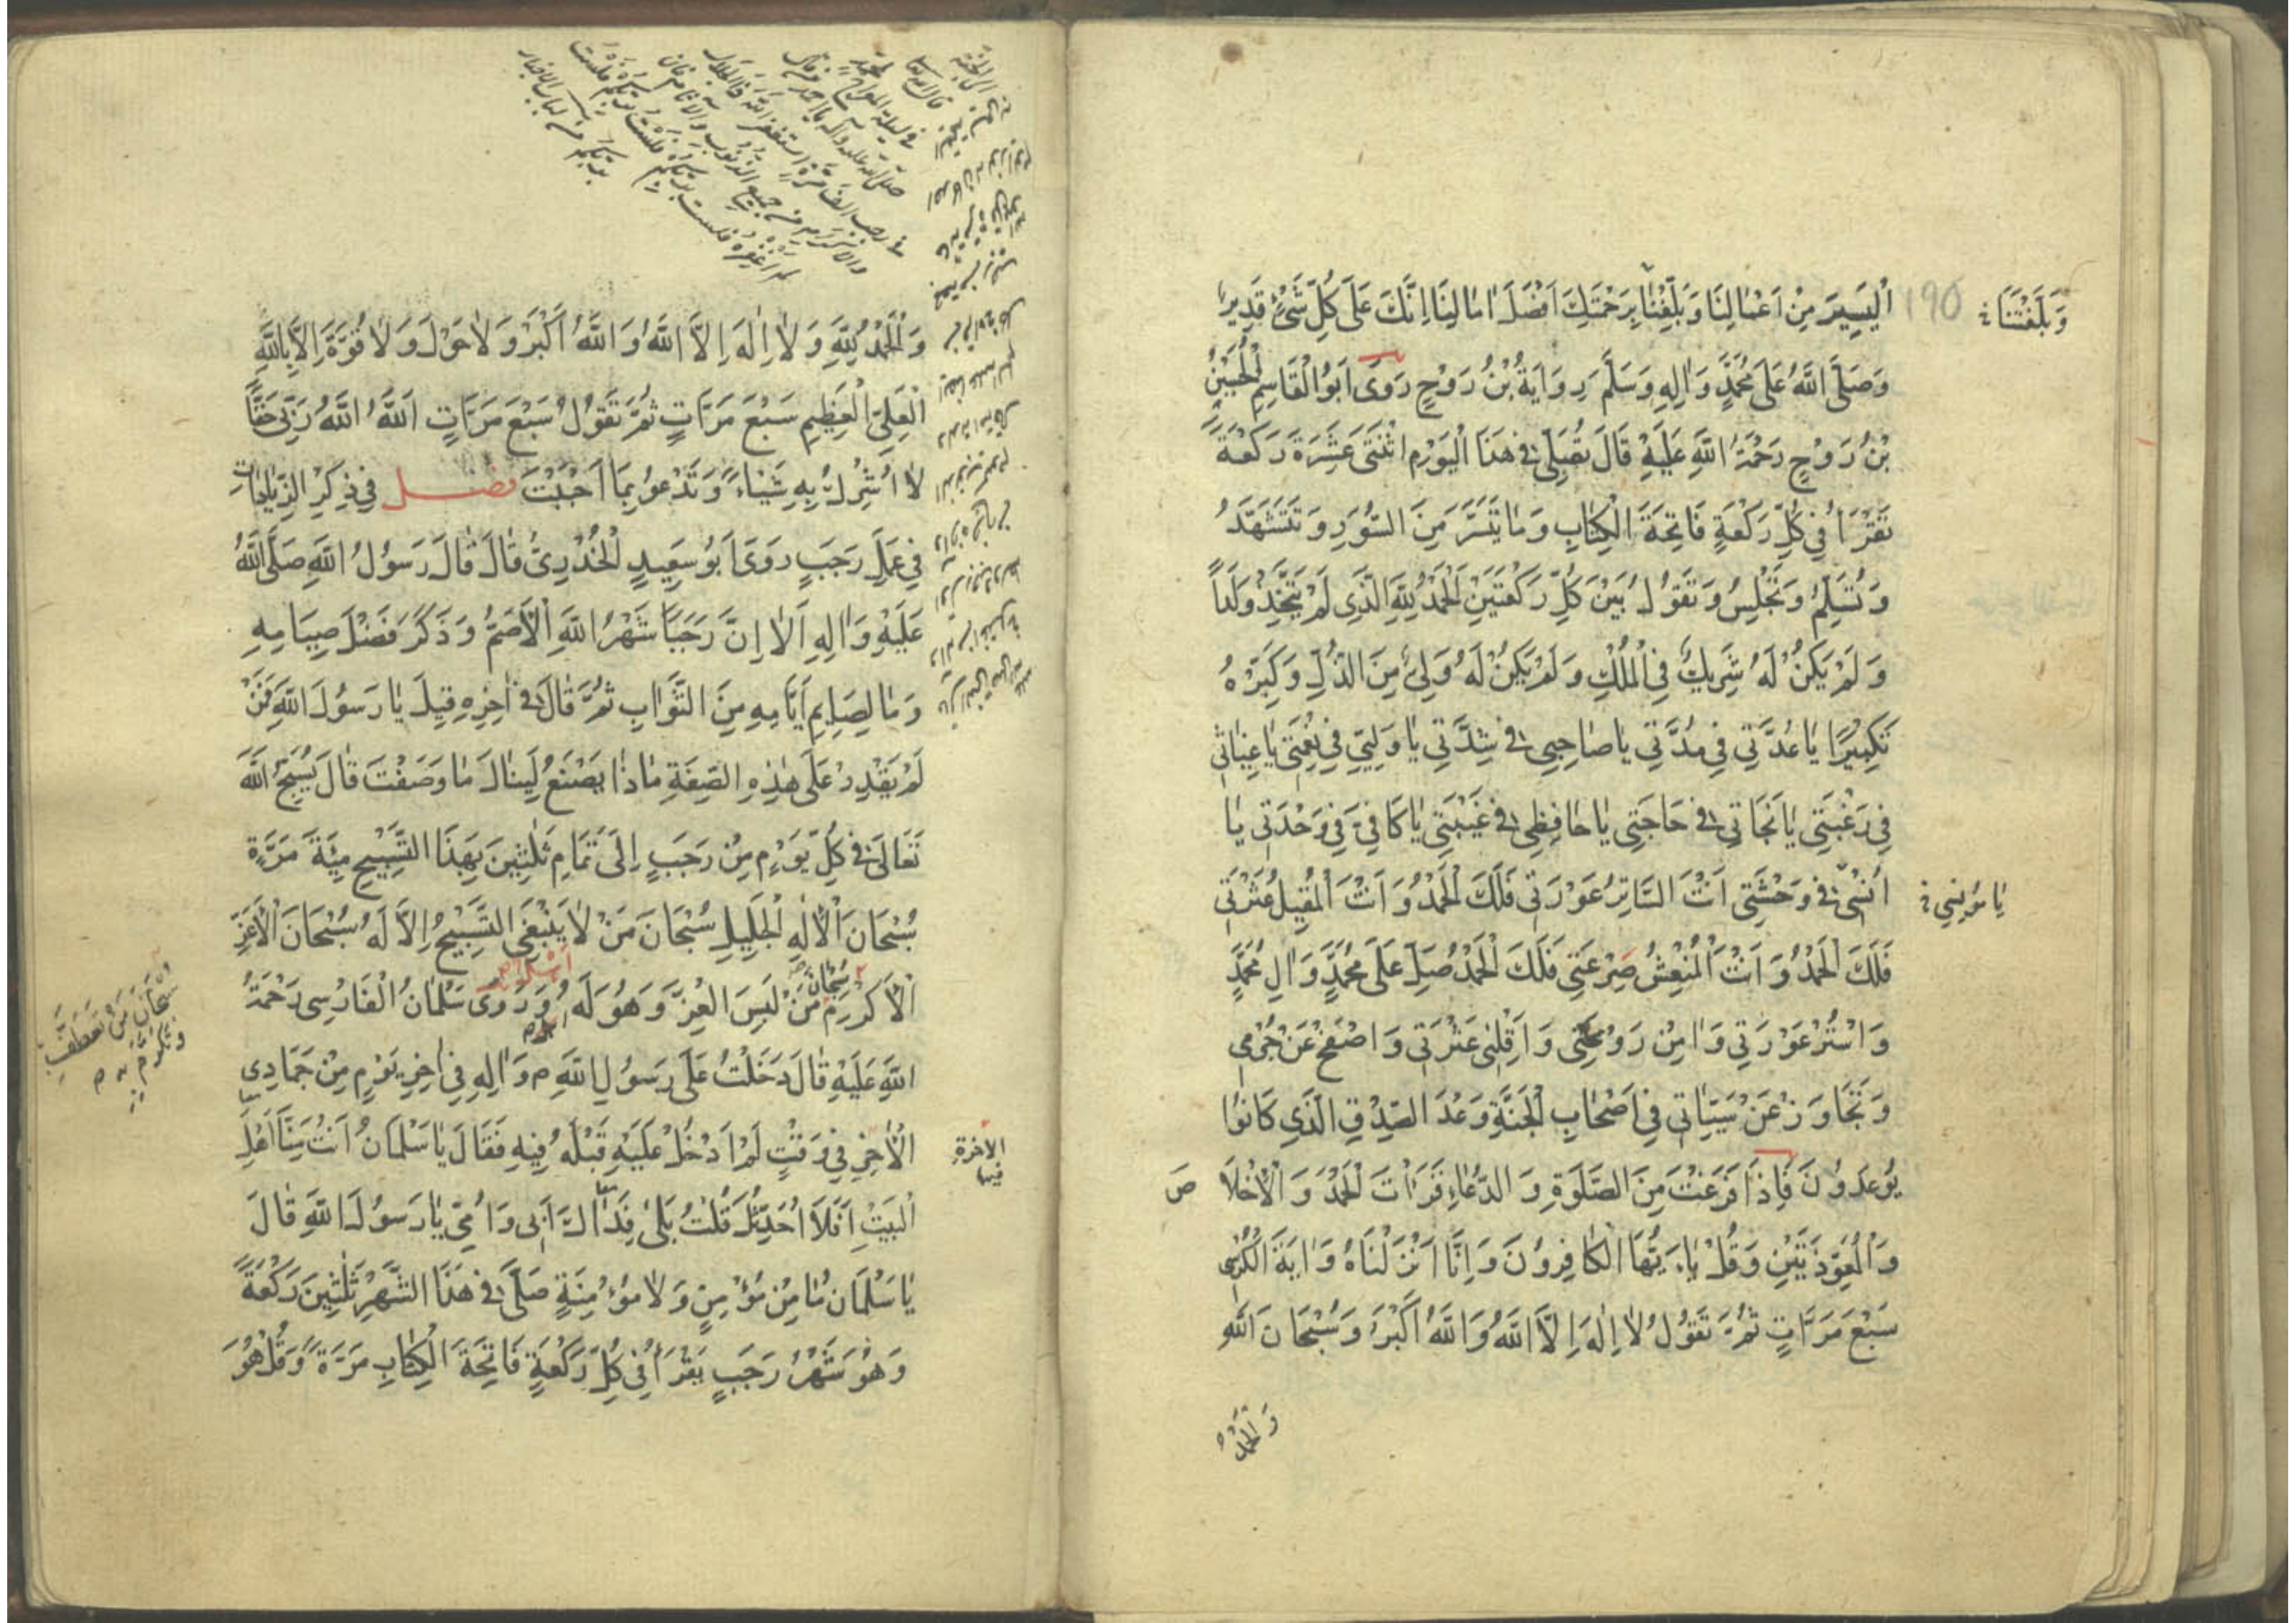 اَلْيَسِيرَ مِنْ اَعْمٰالِنٰا وَبَلِّغْنٰا بِرَحْمَتِكَ اَفْضَلَ اٰمٰالِنٰا اِنَّكَ عَلَى كُلِّ شَىْءٍ قَدِيرٌ
190
وَبَلَغْتَنَا
وَصَلَّى اللّٰهُ عَلَى مُحَمَّدٍ وَاٰلِهِ وَسَلَّمَ رِوَايَةُ بْنُ رَوْحٍ رَوَى اَبُو الْقَاسِمِ الْحُسَيْنُ
بْنُ رَوْحٍ رَحْمَةُ اللّٰهِ عَلَيْهِ قَالَ تُصَلِّى فِي هَذَا الْيَوْمِ اثْنَتَى عَشَرَةَ رَكْعَةً
تَقْرَأُ فِي كُلِّ رَكْعَةٍ فَاتِحَةَ الْكِتٰابِ وَمٰا تَيَسَّرَ مِنَ السُّوَرِ وَتَتَشَهَّدُ
وَتُسَلِّمُ وَتَجْلِسُ وَتَقُولُ بَيْنَ كُلِّ رَكْعَتَيْنِ اَلْحَمْدُ لِلّٰهِ الَّذِى لَمْ يَتَّخِذْ وَلَداً
وَلَمْ يَكُنْ لَهُ شَرِيكٌ فِي الْمُلْكِ وَلَمْ يَكُنْ لَهُ وَلِىٌّ مِنَ الذُّلِّ وَكَبِّرْهُ
تَكْبِيْرًا يٰا عُدَّتِي فِي مُدَّتِي يٰا صٰاحِبِى فِي شِدَّتِي يٰا وَلِيّى فِي نِعْمَتِى يٰا غِيٰاثِى
فِي رَغْبَتِى يٰا نَجَاتِى فِي حَاجَتِى يٰا حٰافِظِى فِي غَيْبَتِى يٰا كَافِىَّ فِي وَحْدَتِى يٰا
اُنْسِى فِي وَحْشَتِى اَنْتَ السَّاتِرُ عَوْرَتِى فَلَكَ الْحَمْدُ وَاَنْتَ الْمُقِيلُ عَثْرَتِى
يٰا مُونِسِي
فَلَكَ الْحَمْدُ وَاَنْتَ الْمُنْعِشُ صَرْعَتِى فَلَكَ الْحَمْدُ صَلِّ عَلَى مُحَمَّدٍ وَاٰلِ مُحَمَّدٍ
وَاسْتُرْ عَوْرَتِى وَاٰمِنْ رَوْعَتِى وَاَقِلْنِى عَثْرَتِى وَاصْفَحْ عَنْ جُرْمِى
وَتَجَاوَزْ عَنْ سَيِّئٰاتِى فِي اَصْحٰابِ الْجَنَّةِ وَعْدَ الصِّدْقِ الَّذِى كَانُوا
يُوعَدُونَ فَاِذَا فَرَغْتَ مِنَ الصَّلٰوةِ وَالدُّعٰاءِ قَرَأْتَ الْحَمْدَ وَالْاِخْلَاصَ
وَالْمُعَوِّذَتَيْنِ وَقُلْ يٰا اَيُّهَا الْكٰافِرُونَ وَاِنَّا اَنْزَلْنَاهُ وَاٰيَةَ الْكُرْسِى
سَبْعَ مَرَّاتٍ ثُمَّ تَقُولُ لٰا اِلٰهَ اِلَّا اللّٰهُ وَاللّٰهُ اَكْبَرُ وَسُبْحَانَ اللّٰهِ
وَالْحَمْدُ
وَالْحَمْدُ لِلّٰهِ وَلٰا اِلٰهَ اِلَّا اللّٰهُ وَاللّٰهُ اَكْبَرُ وَلٰا حَوْلَ وَلٰا قُوَّةَ اِلَّا بِاللّٰهِ
الْعَلِىِّ الْعَظِيمِ سَبْعَ مَرَّاتٍ ثُمَّ تَقُولُ سَبْعَ مَرَّاتٍ اَللّٰهُ اللّٰهُ رَبِّى حَقًّا
لٰا اُشْرِكُ بِهِ شَيْئاً وَتَدْعُو بِمَا اَحْبَبْتَ فصل فِي ذِكْرِ الزِّيٰادٰاتِ
فِي عَمَلِ رَجَبٍ رَوَى اَبُو سَعِيدٍ الْخُدْرِىُّ قٰالَ قٰالَ رَسُولُ اللّٰهِ صَلَّى اللّٰهُ
عَلَيْهِ وَاٰلِهِ اَلٰا اِنَّ رَجَبًا شَهْرُ اللّٰهِ الْاَصَمُّ وَذَكَرَ فَضْلَ صِيَامِهِ
وَمٰا لِصَايِمِ اَيَّامِهِ مِنَ الثَّوٰابِ ثُمَّ قٰالَ فِي اٰخِرِهِ قِيلَ يٰا رَسُولَ اللّٰهِ فَمَنْ
لَمْ يَقْدِرْ عَلَى هٰذِهِ الصِّفَةِ مٰاذٰا يَصْنَعُ لِيَنٰالَ مٰا وَصَفْتَ قٰالَ يُسَبِّحُ اللّٰهَ
تَعَالَى فِي كُلِّ يَوْمٍ مِنْ رَجَبٍ اِلَى تَمَامِ ثَلٰثِينَ بِهَذَا التَّسْبِيحِ مِئَةَ مَرَّةٍ
سُبْحَانَ الْاِلٰهِ الْجَلِيلِ سُبْحَانَ مَنْ لٰا يَنْبَغِى التَّسْبِيحُ اِلَّا لَهُ سُبْحَانَ الْاَعَزِّ
الْاَكْرَمِ سُبْحَانَ مَنْ لَبِسَ الْعِزَّ وَهُوَ لَهُ اَهْلٌ وَرَوَى سَلْمَانُ الْفَارْسِى رَحْمَةُ
سُبْحَانَ مَنْ تَعَطَّفَ
وَتَكَرَّمَ بِهِ
اللّٰهِ عَلَيْهِ قٰالَ دَخَلْتُ عَلَى رَسُولِ اللّٰهِ ص وَاٰلِهِ فِي اٰخِرِ يَوْمٍ مِنْ جَمَادِى
الْاٰخِرِ فِي وَقْتٍ لَمْ اَدْخُلْ عَلَيْهِ قَبْلَهُ فِيهِ فَقَالَ يٰا سَلْمَانُ اَنْتَ مِنَّا اَهْلَ
الاخرة
فيها
الْبَيْتِ اَفَلَا اُحَدِّثُكَ قُلْتُ بَلَىٰ فِدٰاكَ اَبِى وَاُمِّى يٰا رَسُولَ اللّٰهِ قٰالَ
يٰا سَلْمَانُ مٰا مِنْ مُؤْمِنٍ وَلٰا مُؤْمِنَةٍ صَلَّى فِي هَذَا الشَّهْرِ ثَلٰثِينَ رَكْعَةً
وَهُوَ شَهْرُ رَجَبٍ يَقْرَأُ فِي كُلِّ رَكْعَةٍ فَاتِحَةَ الْكِتٰابِ مَرَّةً وَقُلْ هُوَ